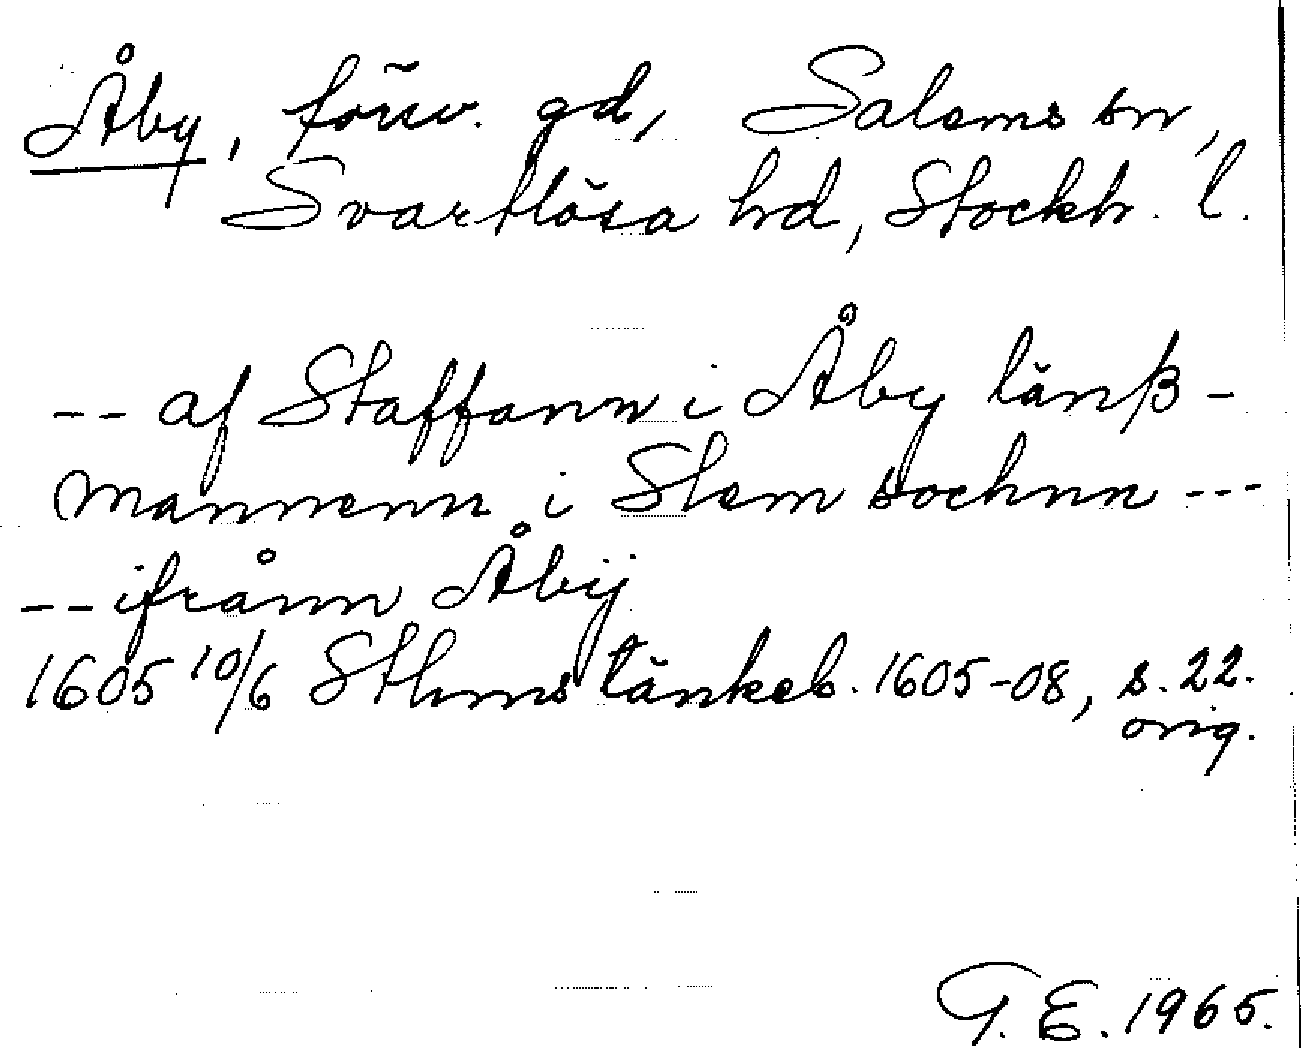 Åby, försv. gd, Salems sn,
Svartlösa hd, Stockh. l.
-- af Staffann i Åby länß-
mannenn i Slem sochnn ---
-- ifrånn Åbÿ
1605 10/6 Sthms tänkeb. 1605-08, s. 22.
orig.
T. E. 1965.